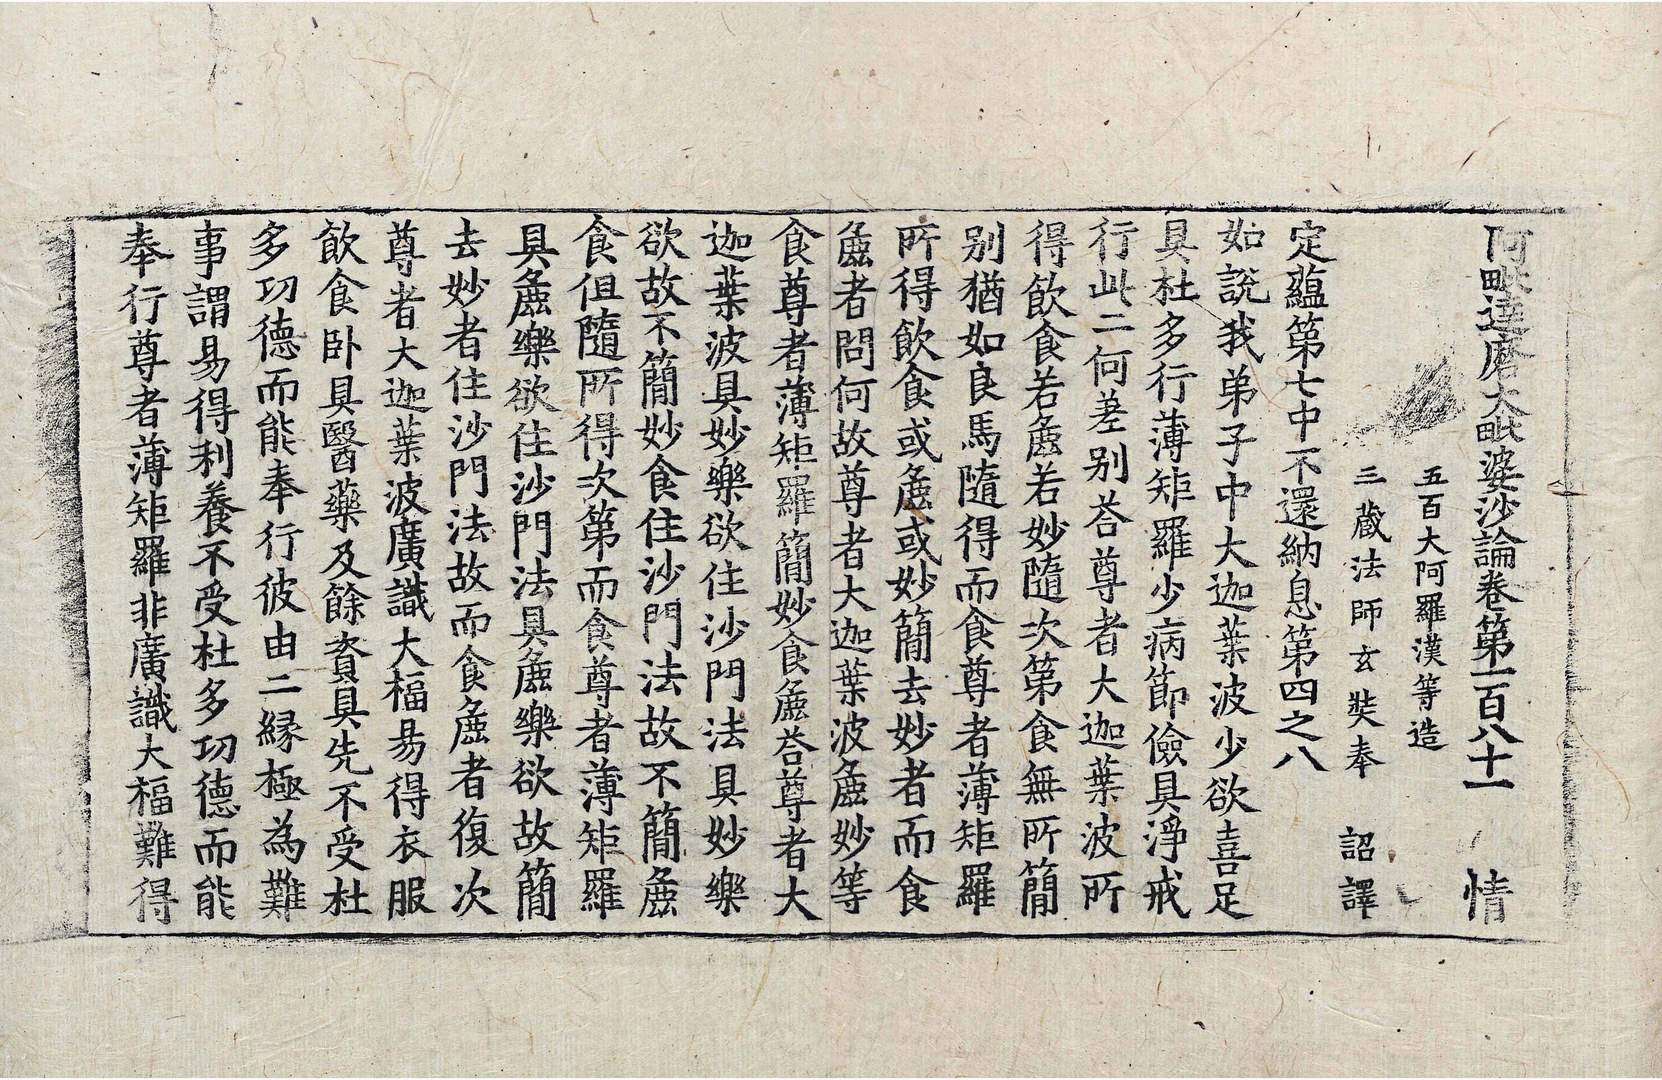 阿毗達磨大毗婆沙論卷第一百八十一 情
五百大阿羅漢等造
三藏法師玄奘奉 詔譯
定蘊第七中不還納息第四之八
如說我弟子中大迦葉波少欲喜足
具杜多行薄矩羅少病節儉具淨戒
行此二何差別荅尊者大迦葉波所
得飲食若麁若妙隨次第食無所簡
別猶如良馬隨得而食尊者薄矩羅
所得飲食或麁或妙簡去妙者而食
麁者問何故尊者大迦葉波麁妙等
食尊者薄矩羅簡妙食麁荅尊者大
迦葉波具妙樂欲住沙門法具妙樂
欲故不簡妙食住沙門法故不簡麁
食但隨所得次第而食尊者薄矩羅
具麁樂欲住沙門法具麁樂欲故簡
去妙者住沙門法故而食麁者復次
尊者大迦葉波廣識大福易得衣服
飲食卧具醫藥及餘資具先不受杜
多功德而能奉行彼由二緣極為難
事謂易得利養不受杜多功德而能
奉行尊者薄矩羅非廣識大福難得